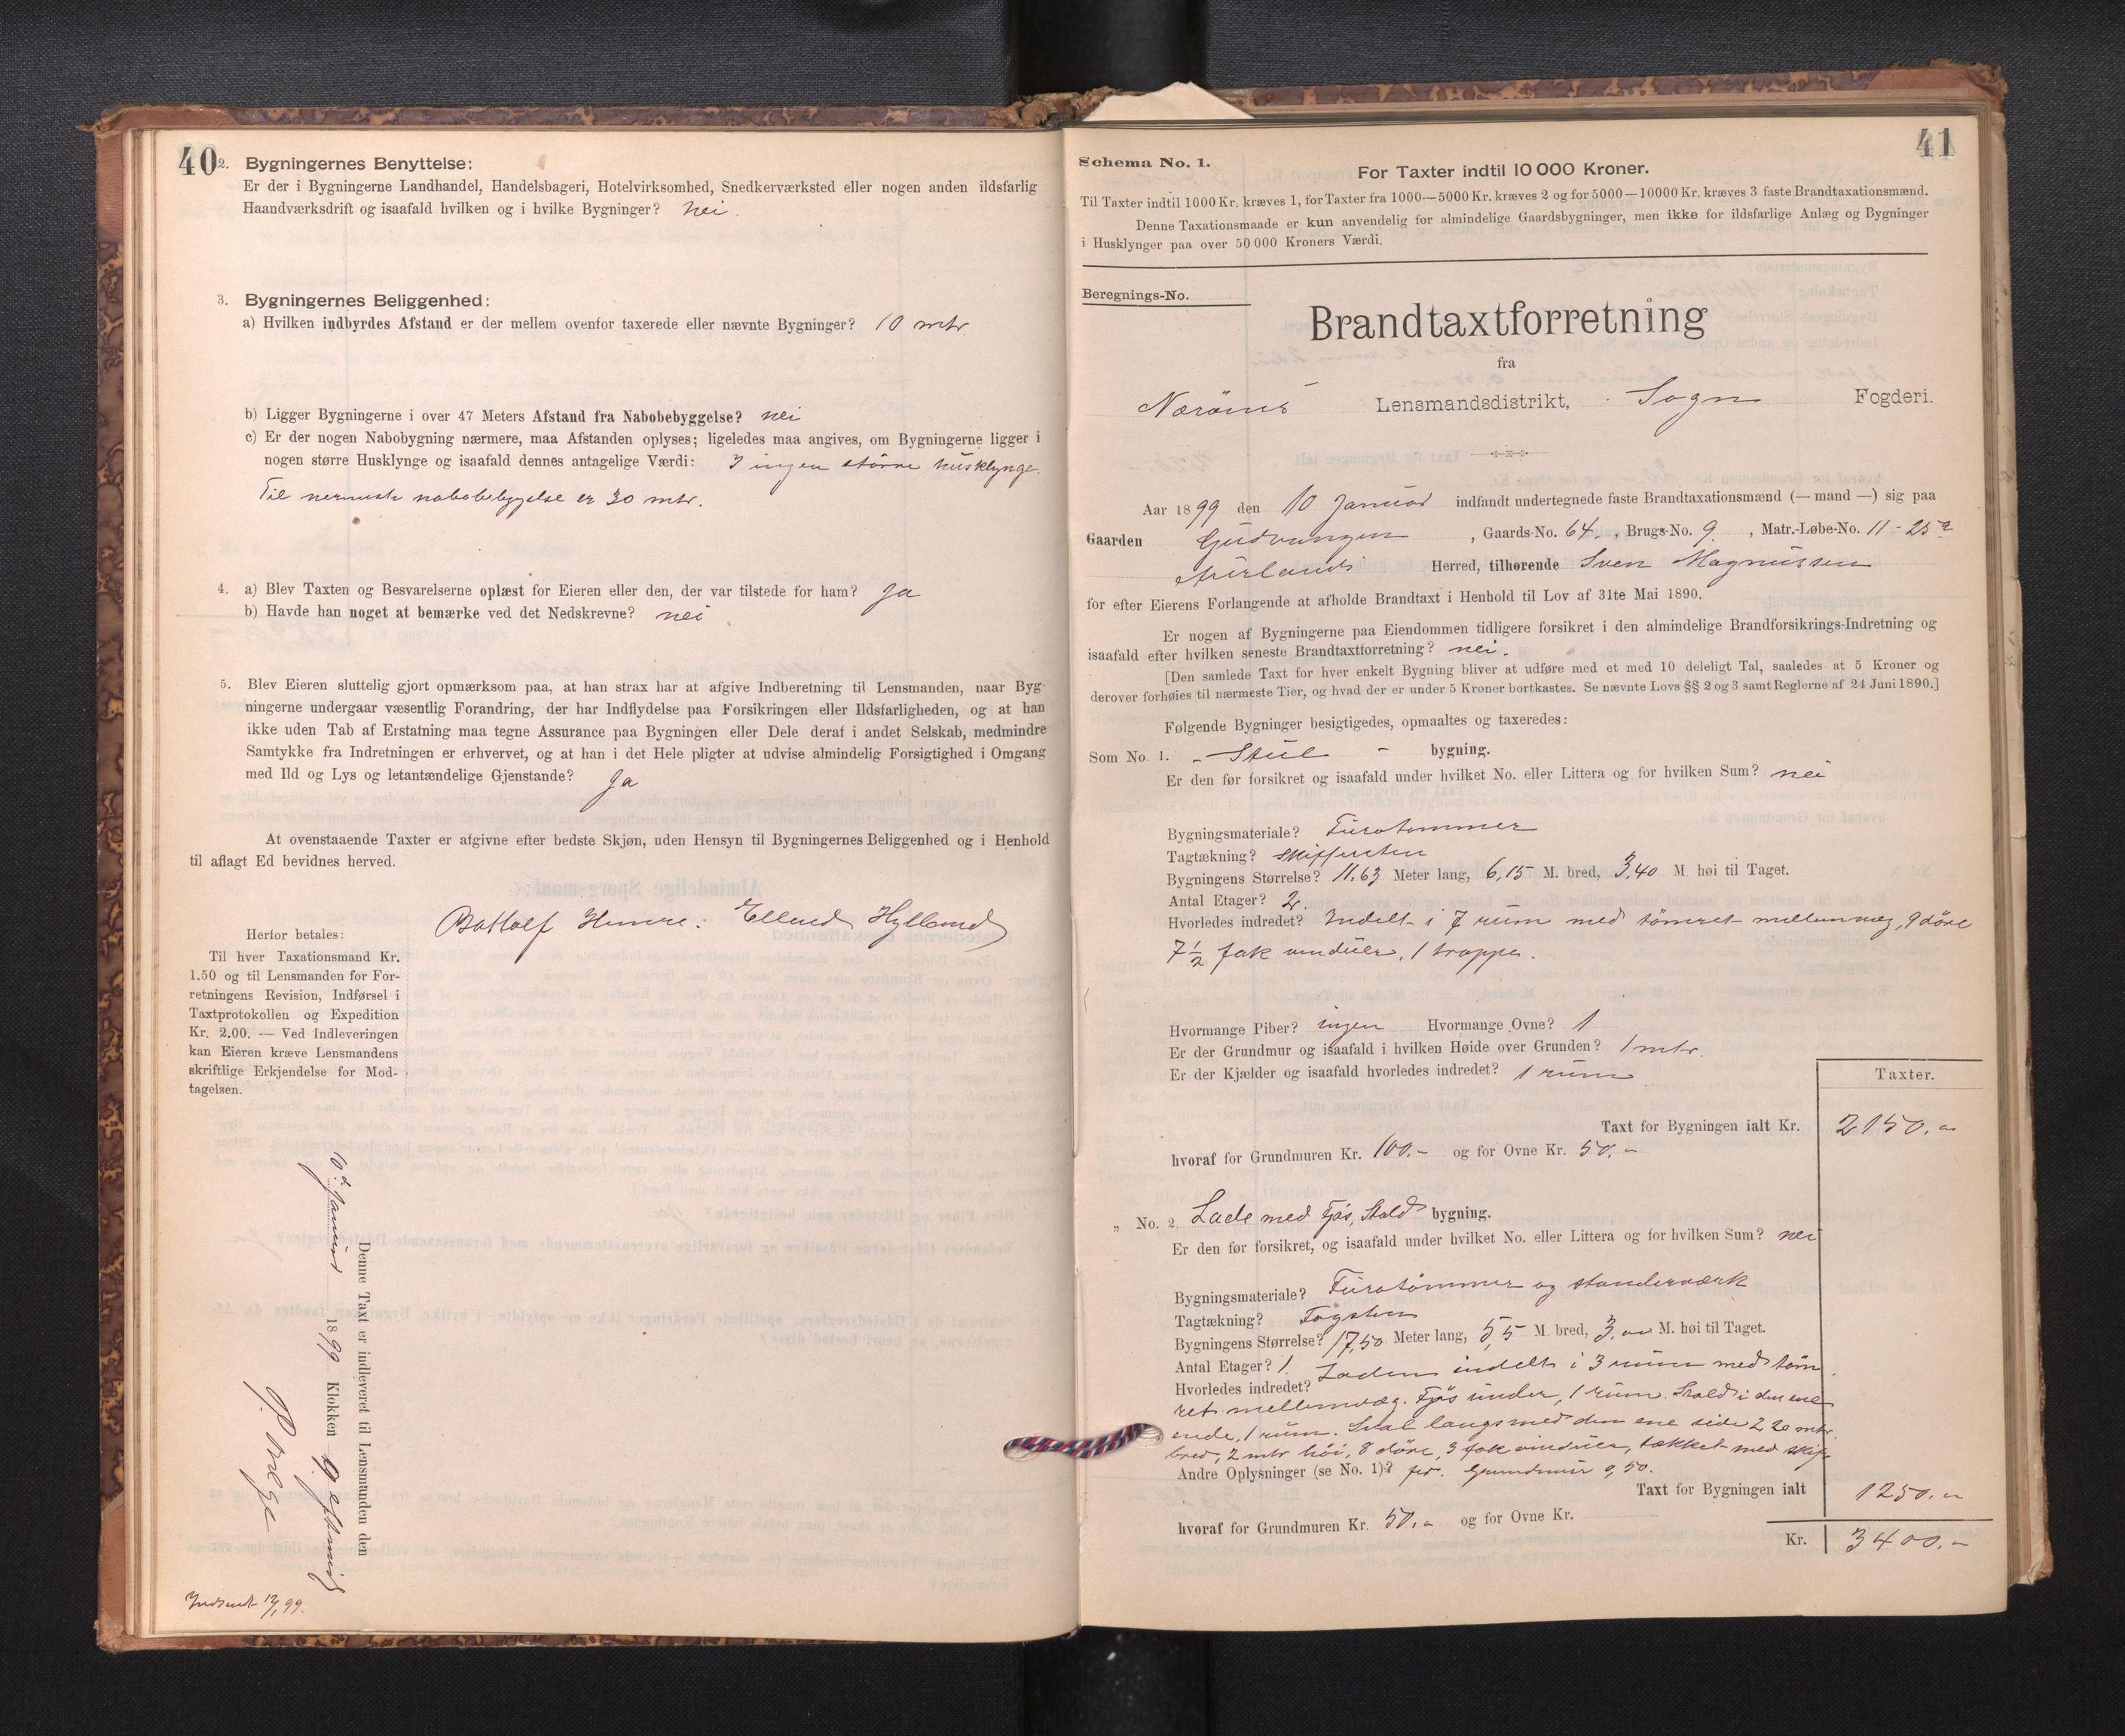 40
2. Bygningernes Benyttelse:
Er der i Bygningerne Landhandel, Handelsbageri, Hotelvirksomhed, Snedkerværksted eller nogen anden ildsfarlig
Haandværksdrift og isaafald hvilken og i hvilke Bygninger? nei.
3. Bygningernes Beliggenhed:
a) Hvilken indbyrdes Afstand er der mellem ovenfor taxerede eller nævnte Bygninger? 10 mtr.
b) Ligger Bygningerne i over 47 Meters Afstand fra Nabobebyggelse? nei
c) Er der nogen Nabobygning nærmere, maa Afstanden oplyses; ligeledes maa angives, om Bygningerne ligger i
nogen større Husklynge og isaafald dennes antagelige Værdi: I ingen større husklynge.
Til nermeste nabobebyggelse er 30 mtr.
4. a) Blev Taxten og Besvarelserne oplæst for Eieren eller den, der var tilstede for ham? Ja
b) Havde han noget at bemærke ved det Nedskrevne? nei
5. Blev Eieren sluttelig gjort opmærksom paa, at han strax har at afgive Indberetning til Lensmanden, naar Byg-
ningerne undergaar væsentlig Forandring, der har Indflydelse paa Forsikringen eller Ildsfarligheden, og at han
ikke uden Tab af Erstatning maa tegne Assurance paa Bygningen eller Dele deraf i andet Selskab, medmindre
Samtykke fra Indretningen er erhvervet, og at han i det Hele pligter at udvise almindelig Forsigtighed i Omgang
med Ild og Lys og letantændelige Gjenstande? Ja
At ovenstaaende Taxter er afgivne efter bedste Skjøn, uden Hensyn til Bygningernes Beliggenhed og i Henhold
til aflagt Ed bevidnes herved.
Botolf Hemre. Ellend Hylland
Herfor betales:
Til hver Taxationsmand Kr.
1.50 og til Lensmanden for For-
retningens Revision, Indførsel i
Taxtprotokollen og Expedition
Kr. 2.00. — Ved Indleveringen
kan Eieren kræve Lensmandens
skriftlige Erkjendelse for Mod-
tagelsen.
Denne Taxt er indleveret til Lensmanden den
10d Januar 1899 Klokken 9 eftmid
Indsendt 12/1 99.
41
Schema No. 1.
For Taxter indtil 10 000 Kroner.
Til Taxter indtil 1000 Kr. kræves 1, for Taxter fra 1000—5000 Kr. kræves 2 og for 5000—10000 Kr. kræves 3 faste Brandtaxationsmænd.
Denne Taxationsmaade er kun anvendelig for almindelige Gaardsbygninger, men ikke for ildsfarlige Anlæg og Bygninger
i Husklynger paa over 50 000 Kroners Værdi.
Beregnings-No.
Brandtaxtforretning
fra
Nærøens Lensmandsdistrikt, Sogn Fogderi.
Aar 1899 den 10 Januar indfandt undertegnede faste Brandtaxationsmænd (— mand —) sig paa
Gaarden Gudvangen, Gaards-No. 64., Brugs-No. 9., Matr.-Løbe-No. 11 - 25a
Aurlands Herred, tilhørende Sven Magnussen
for efter Eierens Forlangende at afholde Brandtaxt i Henhold til Lov af 31te Mai 1890.
Er nogen af Bygningerne paa Eiendommen tidligere forsikret i den almindelige Brandforsikrings-Indretning og
isaafald efter hvilken seneste Brandtaxtforretning? nei.
[Den samlede Taxt for hver enkelt Bygning bliver at udføre med et med 10 deleligt Tal, saaledes at 5 Kroner og
derover forhøies til nærmeste Tier, og hvad der er under 5 Kroner bortkastes. Se nævnte Lovs §§ 2 og 3 samt Reglerne af 24 Juni 1890.]
Følgende Bygninger besigtigedes, opmaaltes og taxeredes:
Som No. 1. Stue - bygning.
Er den før forsikret og isaafald under hvilket No. eller Littera og for hvilken Sum? nei
Bygningsmateriale? Furotømmer
Tagtækning? Skiffersten
Bygningens Størrelse? 11,63 Meter lang, 6,15 M. bred, 3,40 M. høi til Taget.
Antal Etager? 2.
Hvorledes indredet? Indelt i 7 rum med tømret mellemvæg, 9 døre
7½ fak vinduer, 1 trappe.
Hvormange Piber? ingen Hvormange Ovne? 1
Er der Grundmur og isaafald i hvilken Høide over Grunden? 1 mtr.
Er der Kjælder og isaafald hvorledes indredet? 1 rum
Taxter.
Taxt for Bygningen ialt Kr. 2150.-
hvoraf for Grundmuren Kr. 100.- og for Ovne Kr. 50.-
„ No. 2. Lade med Fjøs, Stald bygning.
Er den før forsikret, og isaafald under hvilket No. eller Littera og for hvilken Sum? nei
Bygningsmateriale? Furotømmer og standerværk
Tagtækning? Tagsten
Bygningens Størrelse? 17,50 Meter lang, 5,5 M. bred, 3,00 M. høi til Taget.
Antal Etager? 1.
Hvorledes indredet? Laden indelt i 3 rum med tøm
ret mellemvæg. Fjøs under, 1 rum. Stald i den ene
ende, 1 rum. Sval langs med den ene side 2,20 mtr.
bred, 2 mtr høi, 8 døre, 3 fak vinduer, tækket med skif
Andre Oplysninger (se No. 1)? fer. Grundmur 0,50.
Taxt for Bygningen ialt 1250.-
hvoraf for Grundmuren Kr. 50.- og for Ovne Kr.
Kr. 3400.-